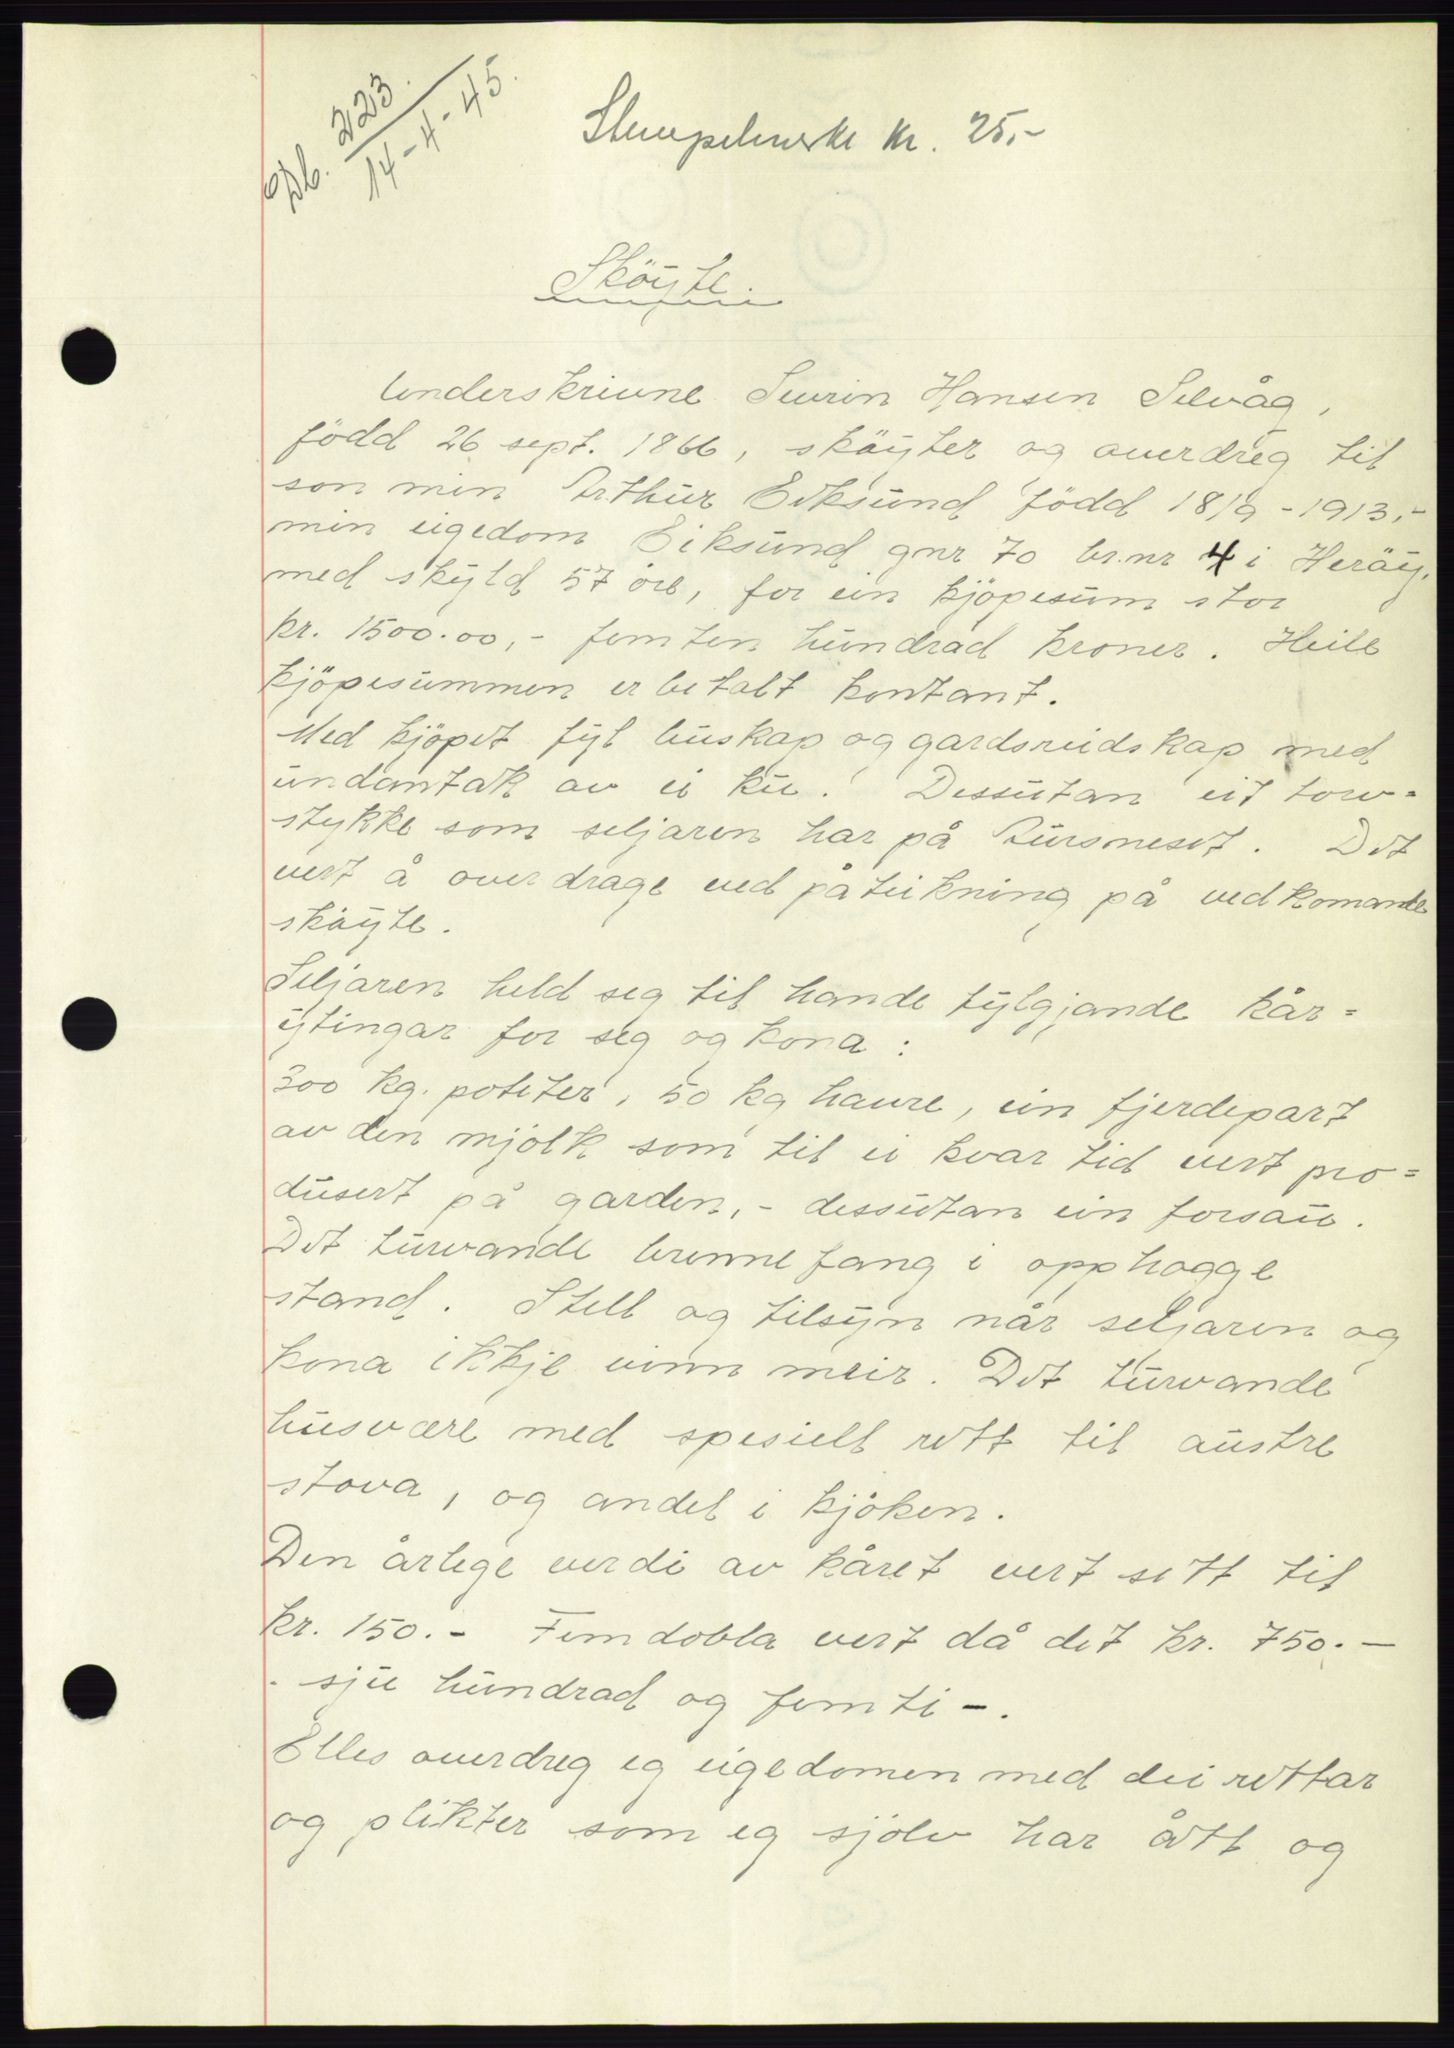 Db. 223.
14-4-45.
Stempelmerke kr. 25,-
Sköyte.
Underskrivne Sevrin Hansen Selvåg,
född 26 sept. 1866, sköyter og overdreg til
son min Arthur Eiksund född 18/9-1913,-
min eigedom Eiksund gnr 70 br.nr 4 i Heröy,
med skyld 57 öre, for ein kjöpesum stor
kr. 1500.00,- femten hundrad kroner. Heile
kjöpesummen er betalt kontant.
Med kjöpet fyl buskap og gardsreidskap med
undantak av ei ku. Dessutan eit torv=
stykke som seljaren har på Kursneset. Det
vert å overdrage ved påteikning på vedkomande
sköyte.
Seljaren held seg til hande fylgjande kår=
ytingar for seg og kona:
300 kg. poteter, 50 kg havre, ein fjerdepart
av den mjölk som til ei kvar tid vert pro=
dusert på garden,- dessutan ein forsau.
Det turvande brennefang i opphogge
stand. Stell og tilsyn når seljaren og
kona ikkje vinn meir. Det turvande
husvære med spesiell rett til austre
stova, og andel i kjöken.
Den årlege verdi av kåret vert sett til
kr. 150.- Femdobla vert då det kr. 750.-
- sju hundrad og femti -.
Elles overdreg eg eigedomen med dei rettar
og plikter som eg sjölv har ått og